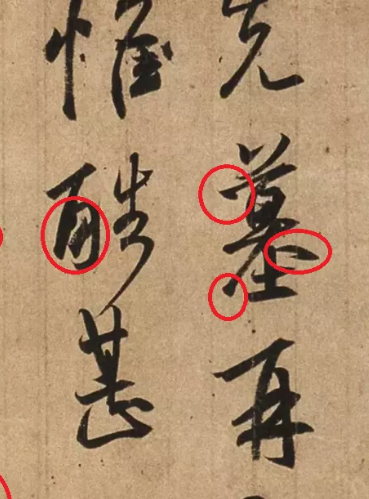 先墓再
惟酷甚